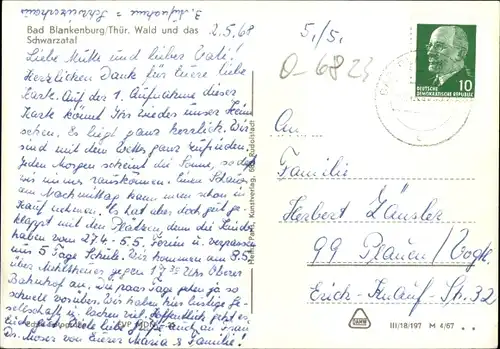 3. Aufnahme = Schwarzatal
Bad Blankenburg/Thür. Wald und das
Schwarzatal
2.5.68
Liebe Mutti und lieber Vati!
Herzlichen Dank für Eure liebe
Karte. Auf der 1. Aufnahme dieser
Karte könnt Ihr wieder unser Heim
sehen. Es liegt ganz herrlich. Wir
sind mit dem Wetter ganz zufrieden.
Jeden Morgen scheint die Sonne, so daß
wir immer rauskönnen. Einen Schauer
am Nachmittag kann man schon in
Kauf nehmen. Es hat aber doch gut ge-
klappt mit den Plätzen, denn die Kinder
haben vom 27.4.-5.5. Ferien u. verpassen
nur 5 Tage Schule. Wir kommen am 8.5.
über Mehltheuer gegen Uhr Oberer
Bahnhof an. Die paar Tage gehen ja so
schnell vorüber. Wir haben hier lustige Ge-
sellschaft u. lachen viel. Hoffentlich geht es
Dr. Moser von Eurer Maria & Familie!
5./5.
0-6823
DEUTSCHE
DEMOKRATISCHE REPUBLIK
10
An
Familie
Herbert Zänsler
99 Plauen/Vogtl.
Erich-Knauf-Str. 32
III/18/197 M 4/67